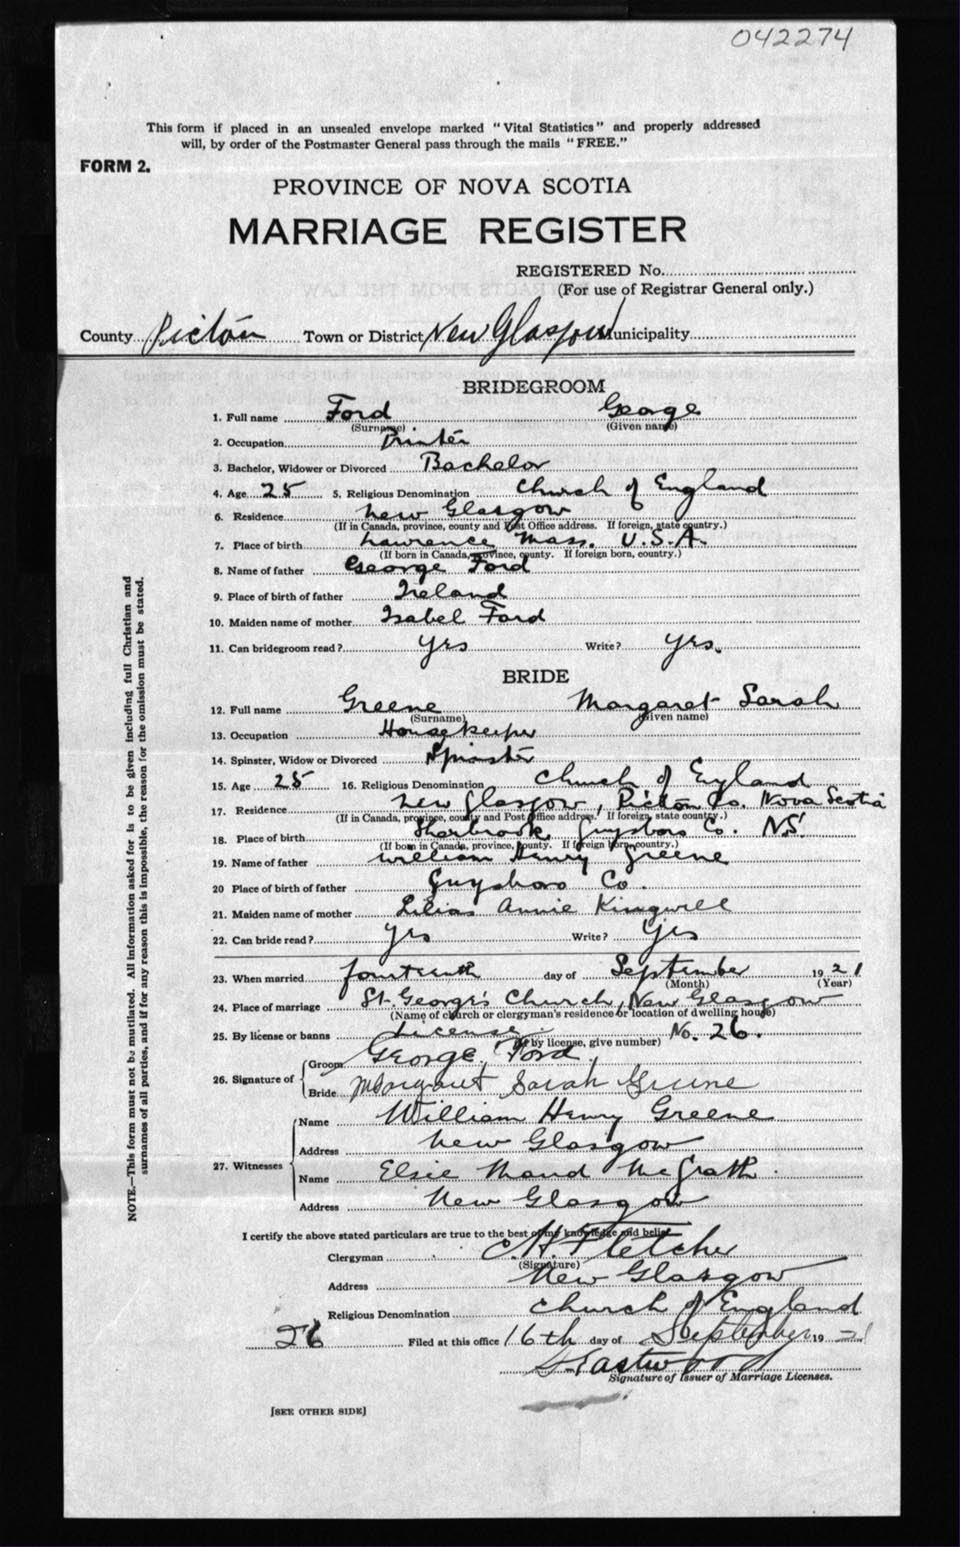 042274
This form if placed in an unsealed envelope marked "Vital Statistics" and properly addressed
will, by order of the Postmaster General pass through the mails "FREE."
FORM 2.
PROVINCE OF NOVA SCOTIA
MARRIAGE REGISTER
REGISTERED No.
(For use of Registrar General only.)
County Picton Town or District New Glasgow Municipality
BRIDEGROOM
1. Full name Ford George
(Surname) (Given name)
2. Occupation Printer
3. Bachelor, Widower or Divorced Bachelor
4. Age 25 5. Religious Denomination Church of England
6. Residence New Glasgow
(If in Canada, province, county and Post Office address. If foreign, state country.)
7. Place of birth Lawrence Mass. U.S.A.
(If born in Canada, province, county. If foreign born, country.)
8. Name of father George Ford
9. Place of birth of father Ireland
10. Maiden name of mother Isabel Ford
11. Can bridegroom read? Yes Write? Yes.
BRIDE
12. Full name Greene Margaret Sarah
(Surname) (Given name)
13. Occupation Housekeeper
14. Spinster, Widow or Divorced Spinster
15. Age 25 16. Religious Denomination Church of England
17. Residence New Glasgow, Picton Co. Nova Scotia
(If in Canada, province, county and Post Office address. If foreign, state country.)
18. Place of birth Sherbrook Guysboro Co. N.S.
(If born in Canada, province, county. If foreign born, country.)
19. Name of father William Henry Greene
20 Place of birth of father Guysboro Co.
21. Maiden name of mother Lilias Annie Kingwell
22. Can bride read? Yes Write? Yes
23. When married fourteenth day of September 1921
(Month) (Year)
24. Place of marriage St. George's Church, New Glasgow
(Name of church or clergyman's residence or location of dwelling house)
25. By license or banns License. No. 26.
(If by license, give number)
26. Signature of Groom George Ford.
Bride Margaret Sarah Greene
27. Witnesses Name William Henry Greene
Address New Glasgow
Name Elsie Maud McGrath.
Address New Glasgow
I certify the above stated particulars are true to the best of my knowledge and belief.
Clergyman A. Fletcher
(Signature)
Address New Glasgow
Religious Denomination Church of England
26 Filed at this office 16th day of September 1921
Eastwood
Signature of Issuer of Marriage Licenses.
[SEE OTHER SIDE]
NOTE.—This form must not be mutilated. All information asked for is to be given including full Christian and
surnames of all parties, and if for any reason this is impossible, the reason for the omission must be stated.